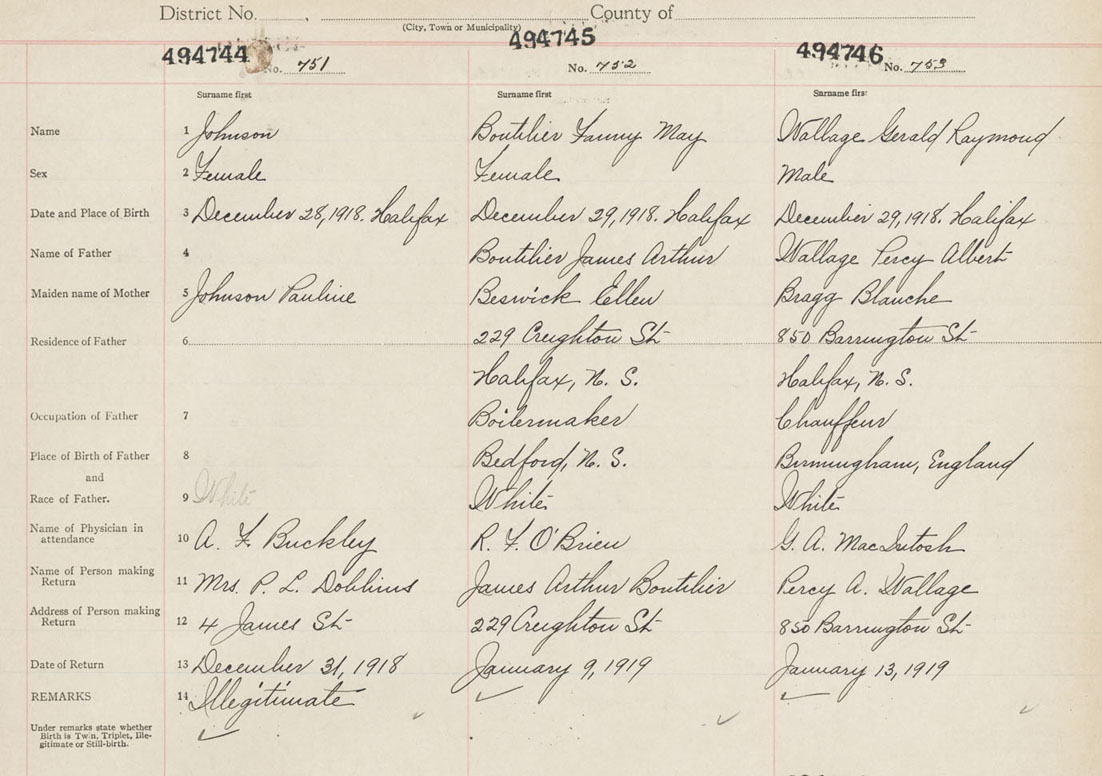 District No. County of
(City, Town or Municipality)
494744 494745 494746
No. 751 No. 752 No. 753
Surname first Surname first Surname first
Name 1 Johnson Boutilier Fanny May Wallage Gerald Raymond
Sex 2 Female Female Male
Date and Place of Birth 3 December 28, 1918. Halifax December 29, 1918. Halifax December 29, 1918. Halifax
Name of Father 4 Boutilier James Arthur Wallage Percy Albert
Maiden name of Mother 5 Johnson Pauline Beswick Ellen Bragg Blanche
Residence of Father 6 229 Creighton St 850 Barrington St
Halifax, N. S. Halifax, N. S.
Occupation of Father 7 Boilermaker Chauffeur
Place of Birth of Father 8 Bedford, N. S. Birmingham, England
and
Race of Father. 9 White White White
Name of Physician in
attendance 10 A. F. Buckley R. F. O'Brien G. A. MacIntosh
Name of Person making
Return 11 Mrs. P. L. Dobbins James Arthur Boutilier Percy A. Wallage
Address of Person making
Return 12 4 James St 229 Creighton St 850 Barrington St
Date of Return 13 December 31, 1918 January 9, 1919 January 13, 1919
REMARKS 14 Illegitimate
Under remarks state whether
Birth is Twin, Triplet, Ille-
gitimate or Still-birth.